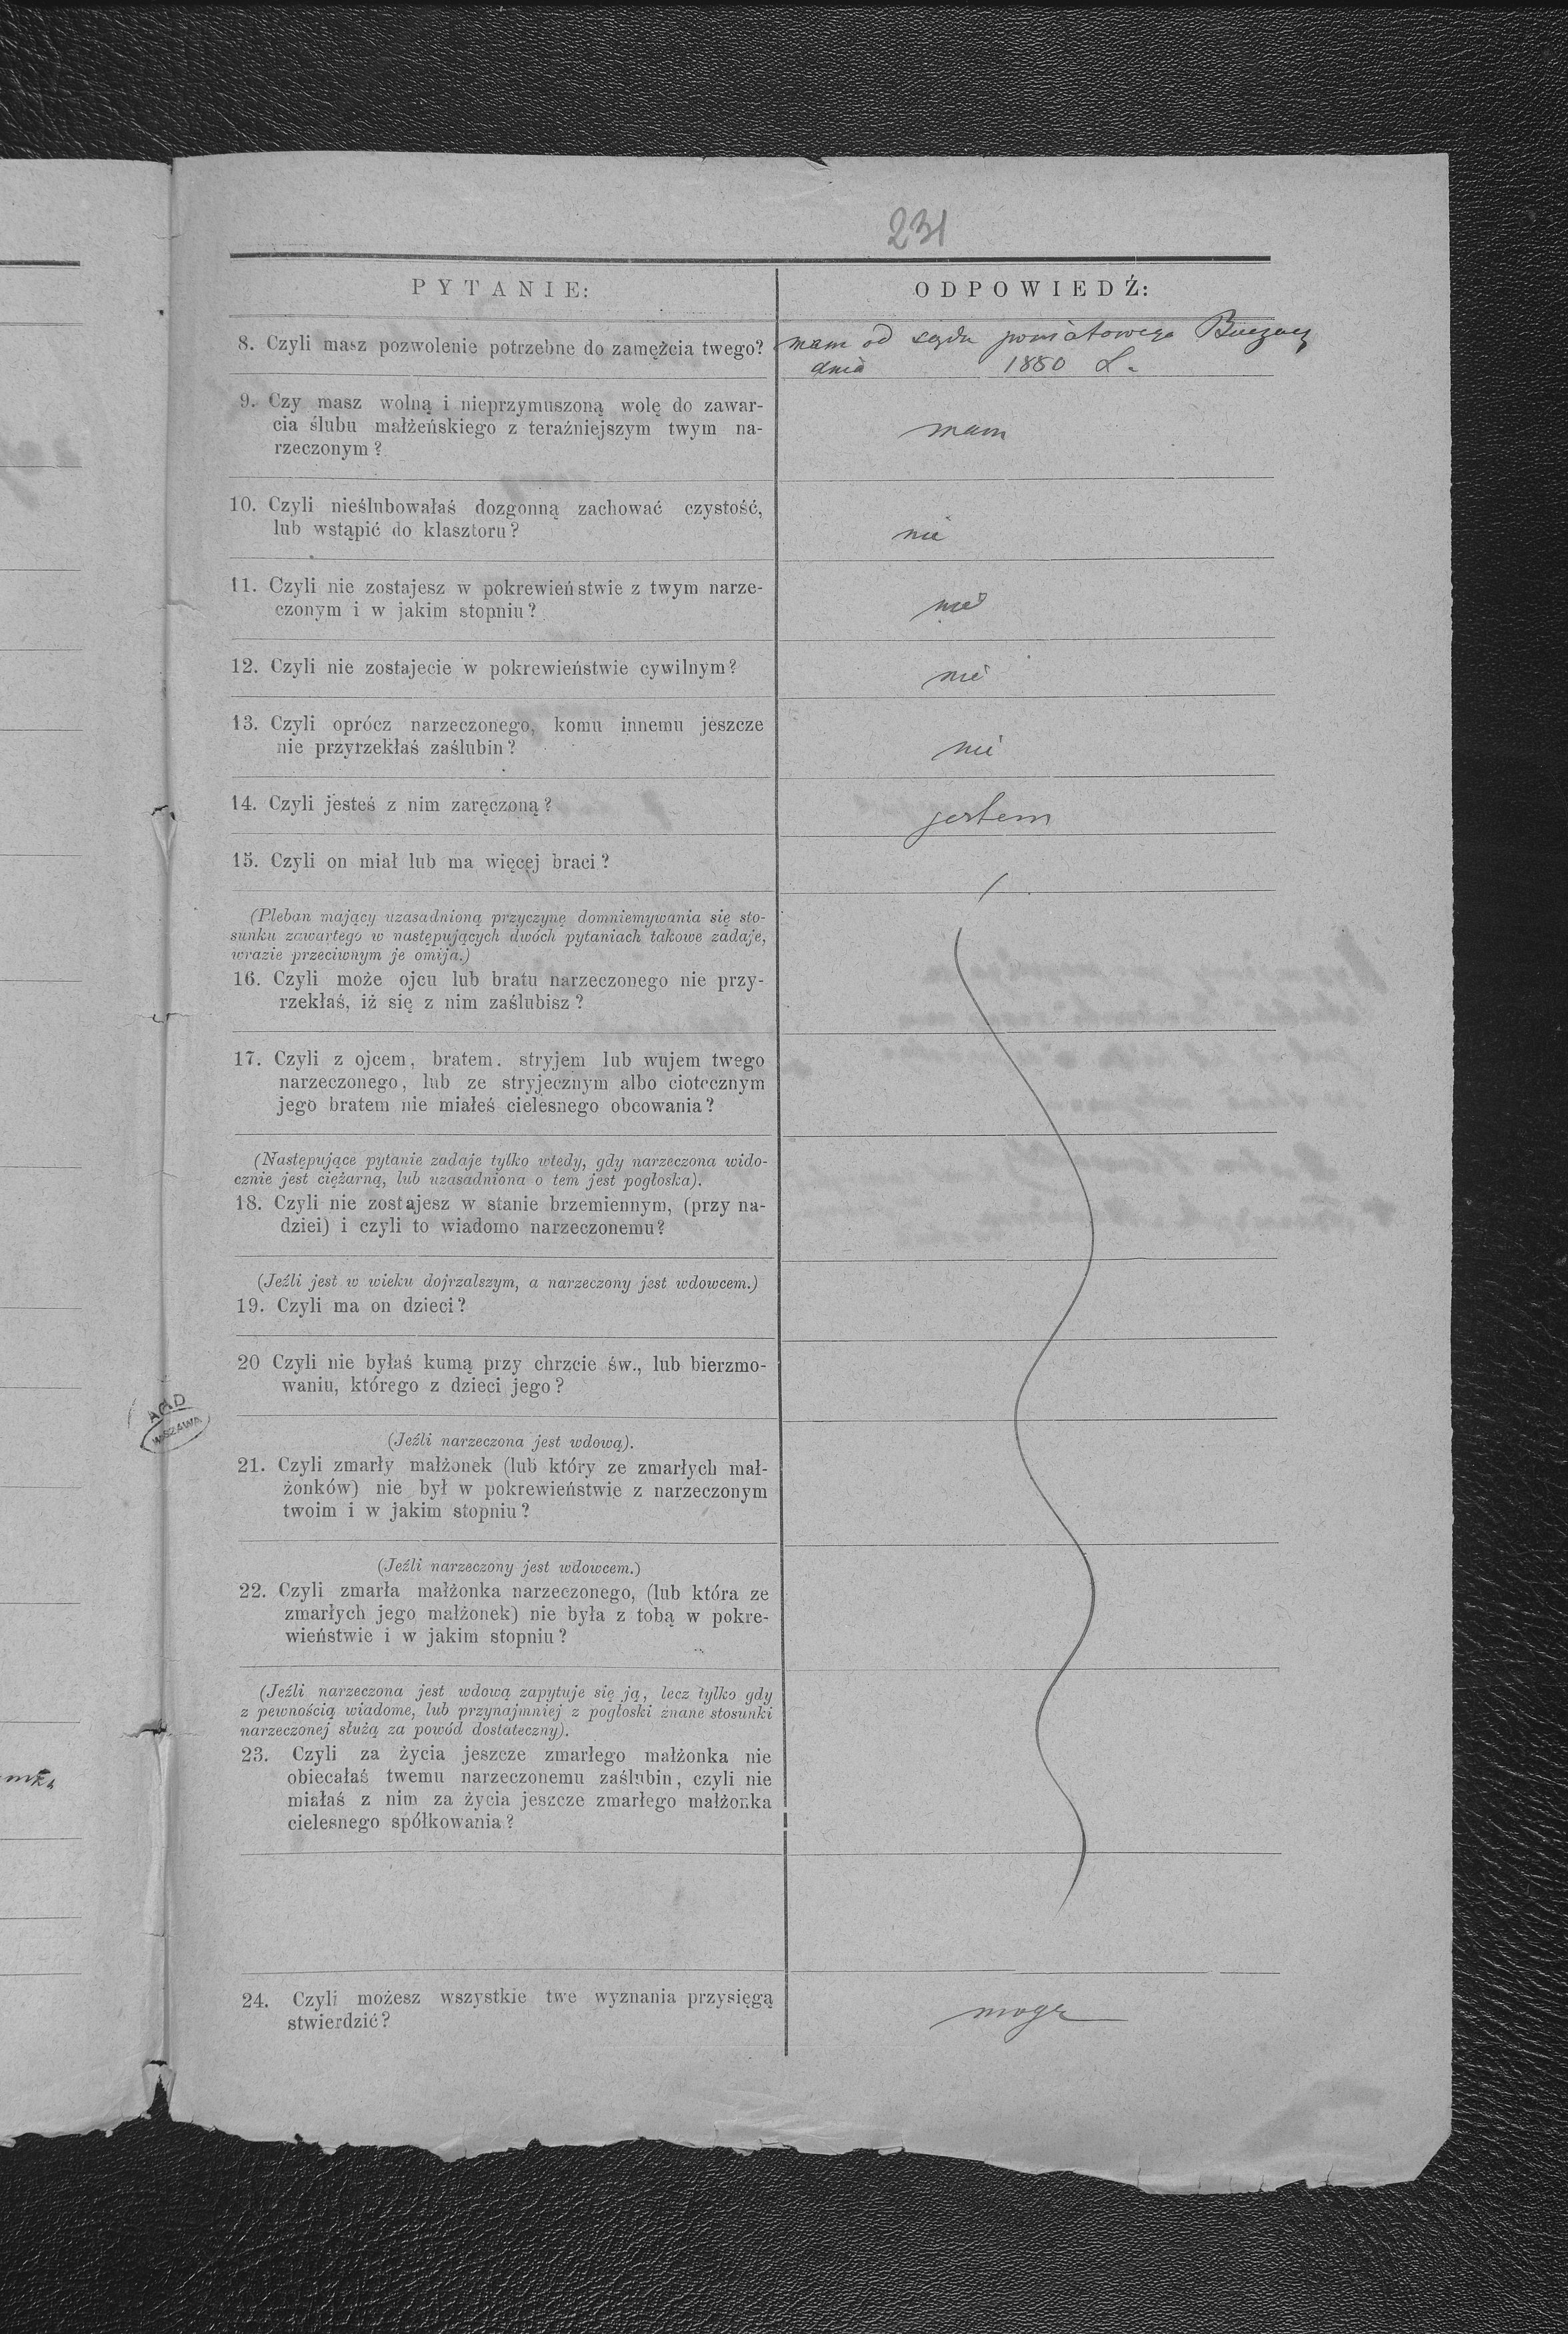 231
PYTANIE:
ODPOWIEDŹ:
8. Czyli masz pozwolenie potrzebne do zamężcia twego?
mam od sądu powiatowego Buczacz
dnia 1880 L.
9. Czy masz wolną i nieprzymuszoną wolę do zawar-
cia ślubu małżeńskiego z teraźniejszym twym na-
rzeczonym?
mam
10. Czyli nieślubowałaś dozgonną zachować czystość,
lub wstąpić do klasztoru?
nie
11. Czyli nie zostajesz w pokrewieństwie z twym narze-
czonym i w jakim stopniu?
nie
12. Czyli nie zostajecie w pokrewieństwie cywilnym?
nie
13. Czyli oprócz narzeczonego, komu innemu jeszcze
nie przyrzekłaś zaślubin?
nie
14. Czyli jesteś z nim zaręczoną?
jestem
15. Czyli on miał lub ma więcej braci?
/
(Pleban mający uzasadnioną przyczynę domniemywania się sto-
sunku zawartego w następujących dwóch pytaniach takowe zadaje,
wrazie przeciwnym je omija.)
16. Czyli może ojcu lub bratu narzeczonego nie przy-
rzekłaś, iż się z nim zaślubisz?
17. Czyli z ojcem, bratem. stryjem lub wujem twego
narzeczonego, lub ze stryjecznym albo ciotecznym
jego bratem nie miałeś cielesnego obcowania?
(Następujące pytanie zadaje tylko wtedy, gdy narzeczona wido-
cznie jest ciężarną, lub uzasadniona o tem jest pogłoska).
18. Czyli nie zostajesz w stanie brzemiennym, (przy na-
dziei) i czyli to wiadomo narzeczonemu?
(Jeźli jest w wieku dojrzalszym, a narzeczony jest wdowcem.)
19. Czyli ma on dzieci?
20 Czyli nie byłaś kumą przy chrzcie św., lub bierzmo-
waniu, którego z dzieci jego?
AGAD
WARSZAWA
(Jeźli narzeczona jest wdową).
21. Czyli zmarły małżonek (lub który ze zmarłych mał-
żonków) nie był w pokrewieństwie z narzeczonym
twoim i w jakim stopniu?
(Jeźli narzeczony jest wdowcem.)
22. Czyli zmarła małżonka narzeczonego, (lub która ze
zmarłych jego małżonek) nie była z tobą w pokre-
wieństwie i w jakim stopniu?
(Jeźli narzeczona jest wdową zapytuje się ją, lecz tylko gdy
z pewnością wiadome, lub przynajmniej z pogłoski znane stosunki
narzeczonej służą za powód dostateczny).
23. Czyli za życia jeszcze zmarłego małżonka nie
obiecałaś twemu narzeczonemu zaślubin, czyli nie
miałaś z nim za życia jeszcze zmarłego małżonka
cielesnego spółkowania?
24. Czyli możesz wszystkie twe wyznania przysięgą
stwierdzić?
mogę